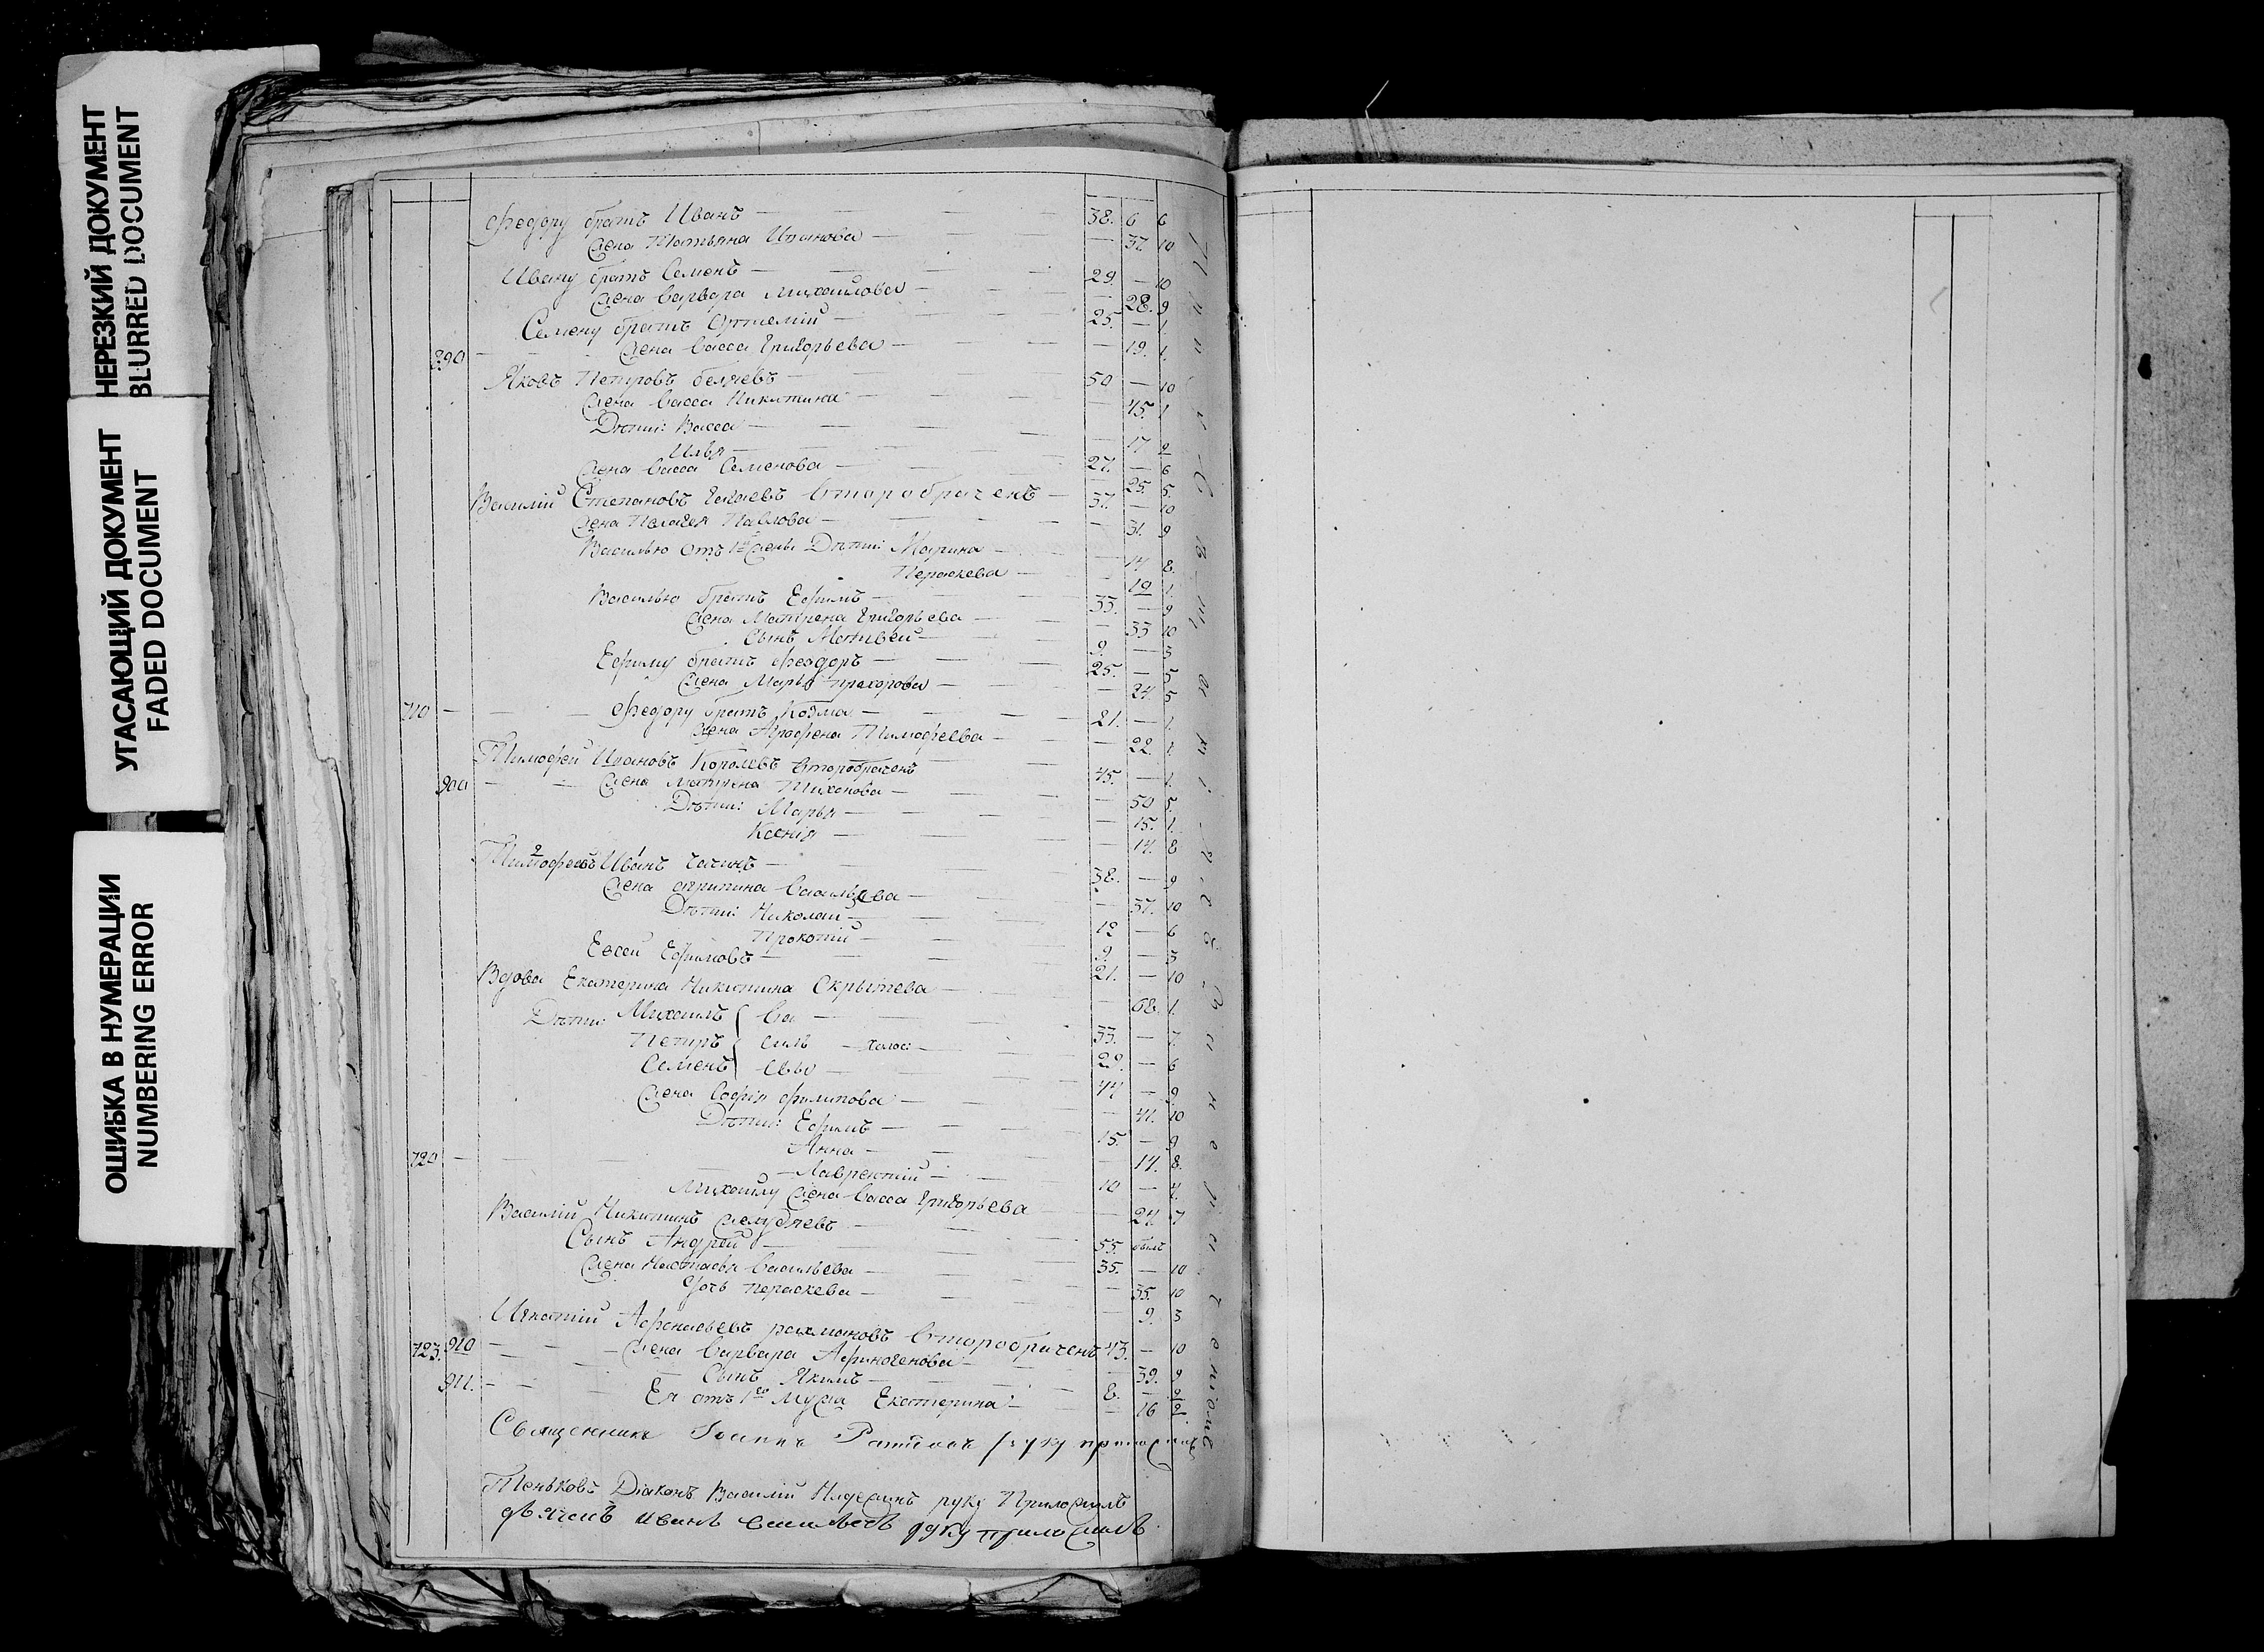 НЕРЕЗКИЙ ДОКУМЕНТ
BLURRED DOCUMENT
УГАСАЮЩИЙ ДОКУМЕНТ
FADED DOCUMENT
ОШИБКА В НУМЕРАЦИИ
NUMBERING ERROR
Федору братъ Иванъ — 38. 6 6
Жена Татьяна Иванова — — 37. 10
Ивану братъ Семенъ — 29. — 10
Жена Варвара Михаилова — — 28. 9
Семену братъ Артиемiй — 25. — 1.
890 Жена Васса Григорьева — — 19. 1.
Яковъ Петровъ Беляевъ — 50 — 10
Жена Васса Никитина — — 45. 1
Дѣти: Васса — — 17 2
Илья — 27. — 6
Жена Васса Семенова — — 25. 5.
Василiй Степановъ второбраченъ — 37. — 10
Жена Пелагея Павлова — — 31. 9
Василью отъ 1й Жены Дѣти: Марина — — 14 8.
Пераскева — — 12 1.
Василью братъ Ефимъ — 33. — 9
Жена Матрена Григорьева — — 33 10
Сынъ Матвей — 9. — 3
Ефиму братъ Феодоръ — 25. — 5
Жена Марья Прохорова — — 24. 5
710 Федору братъ Козма — 21. — 1.
Жена Аграфена Тимофеева — — 22. 1.
Тимофей Ивановъ Королевъ второбраченъ 45. — 1.
900 Жена Матрена Тихонова — — 50 5.
Дѣти: Марья — — 15. 1.
Ксенiя — — 14. 8
Иванъ — 38. — 9
Жена Агрипина Васильева — — 37. 10
Дѣти: Николай — 12 — 6
Прокопiй — 9. — 3
Евсей Ефимовъ — 21. — 10
Вдова Екатерина Никитина Скрытева — — 68. 1.
Дѣти: Михаилъ Ва — 33. — 7.
Петръ силь — — 29. — 6
Семенъ евы — 44 — 9.
Жена Софiя Филипова — — 41. 10
Дѣти: Ефимъ — 15. — 9
Анна — — 14. 8.
720 Лаврентiй — 10 — 4.
Михаилу Жена Васса Григорьева — 24. 7
Василiй Никитинъ — 55. былъ
Сынъ Андрей — 35. — 10
Жена Настасья Васильева — — 35. 10
Дочь Пераскева — — 9. 3
Игнатiй Афонасьевъ Рахмановъ второбраченъ 43. — 10
723. 910 Жена Варвара Афиногенова — — 39. 9
Сынъ Якимъ — 8. — 2
911. Ея отъ 1го Мужа Екатерина — — 16 2.
Священникъ Iоаннъ руку приложилъ
Дiаконъ Василiй руку Приложилъ
дьячекъ Иванъ Васильевъ руку приложилъ